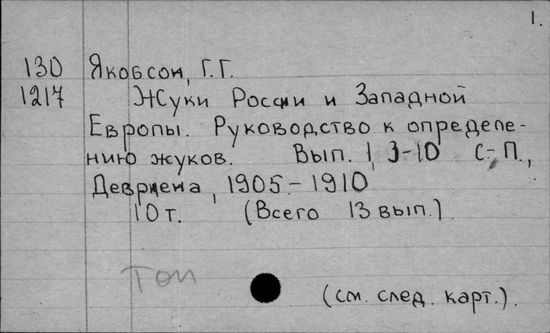 1.
130 Якобсон, Г.Г.
1217 Жуки России и Западной
Европы. Руководство к определе-
нию жуков. Вып. 1, 3-10 С.-П.,
Девриена, 1905-1910
10 т. (Всего 13 вып.).
Топ
(см. след. карт.).